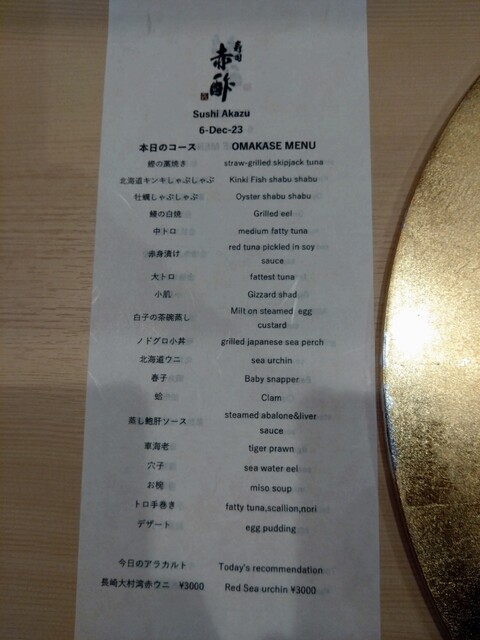 寿司
赤酢
Sushi Akazu
6-Dec-23
本日のコース OMAKASE MENU
鰹の藁焼き straw-grilled skipjack tuna
北海道キンキしゃぶしゃぶ Kinki Fish shabu shabu
牡蠣しゃぶしゃぶ Oyster shabu shabu
鰻の白焼 Grilled eel
中トロ medium fatty tuna
赤身漬け red tuna pickled in soy
sauce
大トロ fattest tuna
小肌 Gizzard shad
白子の茶碗蒸し Milt on steamed egg
custard
ノドグロ小丼 grilled japanese sea perch
北海道ウニ sea urchin
春子 Baby snapper
蛤 Clam
蒸し鮑肝ソース steamed abalone&liver
sauce
車海老 tiger prawn
穴子 sea water eel
お椀 miso soup
トロ手巻き fatty tuna,scallion,nori
デザート egg pudding
今日のアラカルト Today's recommendation
長崎大村湾赤ウニ ¥3000 Red Sea urchin ¥3000